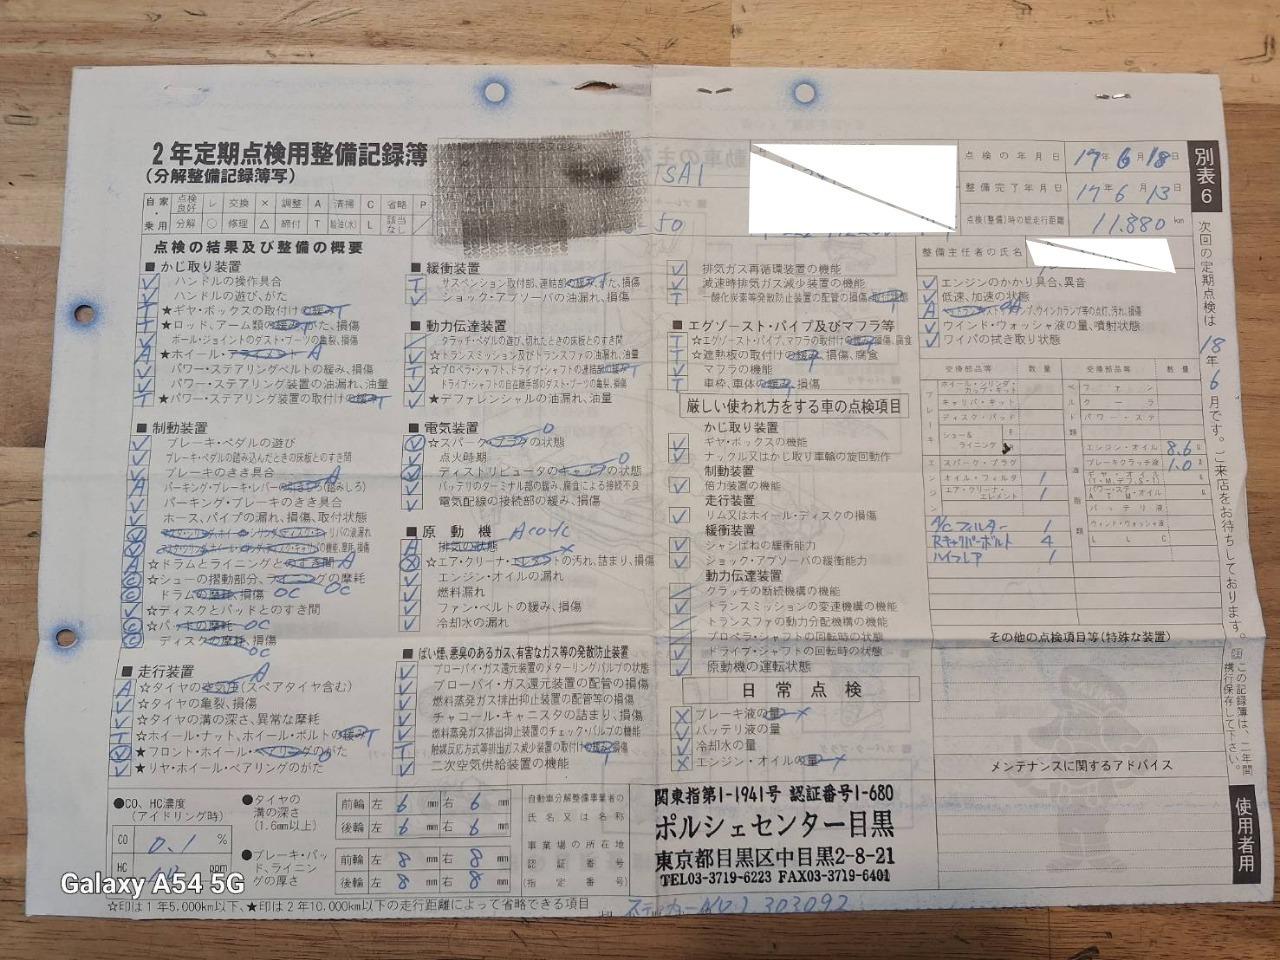 2年定期点検用整備記録簿
(分解整備記録簿写)
TSAI
点検の年月日 17年6月18日
整備完了年月日 17年6月13日
点検(整備)時の総走行距離 11.880 km
整備主任者の氏名
別表6
自家・乗用
点検良好 レ 交換 × 調整 A 清掃 C 省略 P
分解 ○ 修理 △ 締付 T 給油(水) L 該当なし /
点検の結果及び整備の概要
■かじ取り装置
ハンドルの操作具合
ハンドルの遊び、がた
★ギヤ・ボックスの取付けの緩み T
★ロッド、アーム類の緩み、がた、損傷
ボール・ジョイントのダスト・ブーツの亀裂、損傷
★ホイール・アライメント A
パワー・ステアリングベルトの緩み、損傷
パワー・ステアリング装置の油漏れ、油量
★パワー・ステアリング装置の取付けの緩み T
■制動装置
ブレーキ・ペダルの遊び
ブレーキ・ペダルの踏み込んだときの床板とのすき間
ブレーキのきき具合
パーキング・ブレーキ・レバーの引きしろ(踏みしろ)
パーキング・ブレーキのきき具合
ホース、パイプの漏れ、損傷、取付状態
☆ドラムとライニングとのすき間 A
☆シューの摺動部分、ライニングの摩耗
ドラムの摩耗、損傷 OC OC
☆ディスクとパッドとのすき間
☆パッドの摩耗 OC
ディスクの摩耗、損傷
OC
■走行装置
☆タイヤの空気圧(スペアタイヤ含む)
☆タイヤの亀裂、損傷
☆タイヤの溝の深さ、異常な摩耗
☆ホイール・ナット、ホイール・ボルトの緩み T
★フロント・ホイール・ベアリングのがた
★リヤ・ホイール・ベアリングのがた
■緩衝装置
サスペンション取付部、連結部の緩み、がた、損傷
ショック・アブソーバの油漏れ、損傷
■動力伝達装置
クラッチ・ペダルの遊び、切れたときの床板とのすき間
☆トランスミッション及びトランスファの油漏れ、油量
☆プロペラ・シャフト、ドライブ・シャフトの連結部の緩み
ドライブ・シャフトの自在継手部のダスト・ブーツの亀裂、損傷
★デファレンシャルの油漏れ、油量
■電気装置
☆スパーク・プラグの状態
点火時期
ディストリビュータのキャップの状態
バッテリのターミナル部の緩み、腐食による接続不良
電気配線の接続部の緩み、損傷
■原動機
排気の状態
☆エア・クリーナ・エレメントの汚れ、詰まり、損傷
エンジン・オイルの漏れ
燃料漏れ
ファン・ベルトの緩み、損傷
冷却水の漏れ
■ばい煙、悪臭のあるガス、有害なガス等の発散防止装置
ブローバイ・ガス還元装置のメターリングバルブの状態
ブローバイ・ガス還元装置の配管の損傷
燃料蒸発ガス排出抑止装置の配管等の損傷
チャコール・キャニスタの詰まり、損傷
燃料蒸発ガス排出抑止装置のチェック・バルブの機能
触媒反応方式等排出ガス減少装置の取付けの緩み、損傷
二次空気供給装置の機能
排気ガス再循環装置の機能
減速時排気ガス減少装置の機能
一酸化炭素等発散防止装置の配管の損傷、取付状態
■エグゾースト・パイプ及びマフラ等
☆エグゾースト・パイプ、マフラの取付けの緩み、損傷、腐食
☆遮熱板の取付けの緩み、損傷、腐食
マフラの機能
車枠、車体の緩み、損傷
厳しい使われ方をする車の点検項目
かじ取り装置
ギヤ・ボックスの機能
ナックル又はかじ取り車輪の旋回動作
制動装置
倍力装置の機能
走行装置
リム又はホイール・ディスクの損傷
緩衝装置
シャシばねの緩衝能力
ショック・アブソーバの緩衝能力
動力伝達装置
クラッチの断続機構の機能
トランスミッションの変速機構の機能
トランスファの動力分配機構の機能
プロペラ・シャフトの回転時の状態
ドライブ・シャフトの回転時の状態
原動機の運転状態
日常点検
ブレーキ液の量 ×
バッテリ液の量
冷却水の量
エンジン・オイルの量 ×
エンジンのかかり具合、異音
低速、加速の状態
ウインド・ウォッシャ液の量、噴射状態
ワイパの拭き取り状態
交換部品等 数量 交換部品等 数量
ホイール・シリンダ・カップ・キット
キャリパ・キット
ディスク・パッド
シュー&ライニング
スパーク・プラグ
オイル・フィルタ 1
エア・クリーナ・エレメント 1
A/Cフィルター 1
Rキャリパーボルト 4
ハイフレア 1
ファン
クーラ
パワー・ステ
エンジン・オイル 8.6
ブレーキクラッチ液 1.0
バッテリ液
ウィンド・ウォッシャ液
LLC
その他の点検項目等(特殊な装置)
メンテナンスに関するアドバイス
次回の定期点検は18年6月です。ご来店をお待ちしております。
この記録簿は、二年間携行保存して下さい。
使用者用
●CO、HC濃度
(アイドリング時)
CO 0.1 %
HC ppm
●タイヤの溝の深さ(1.6mm以上)
前輪 左 6 mm 右 6 mm
後輪 左 6 mm 右 6 mm
●ブレーキ・パッド、ライニングの厚さ
前輪 左 8 mm 右 8 mm
後輪 左 8 mm 右 8 mm
自動車分解整備事業者の
氏名又は名称
事業場の所在地
認証番号
(指定番号)
関東指第1-1941号 認証番号1-680
ポルシェセンター目黒
東京都目黒区中目黒2-8-21
TEL03-3719-6223 FAX03-3719-6401
☆印は1年5,000km以下、★印は2年10,000km以下の走行距離によって省略できる項目
Galaxy A54 5G